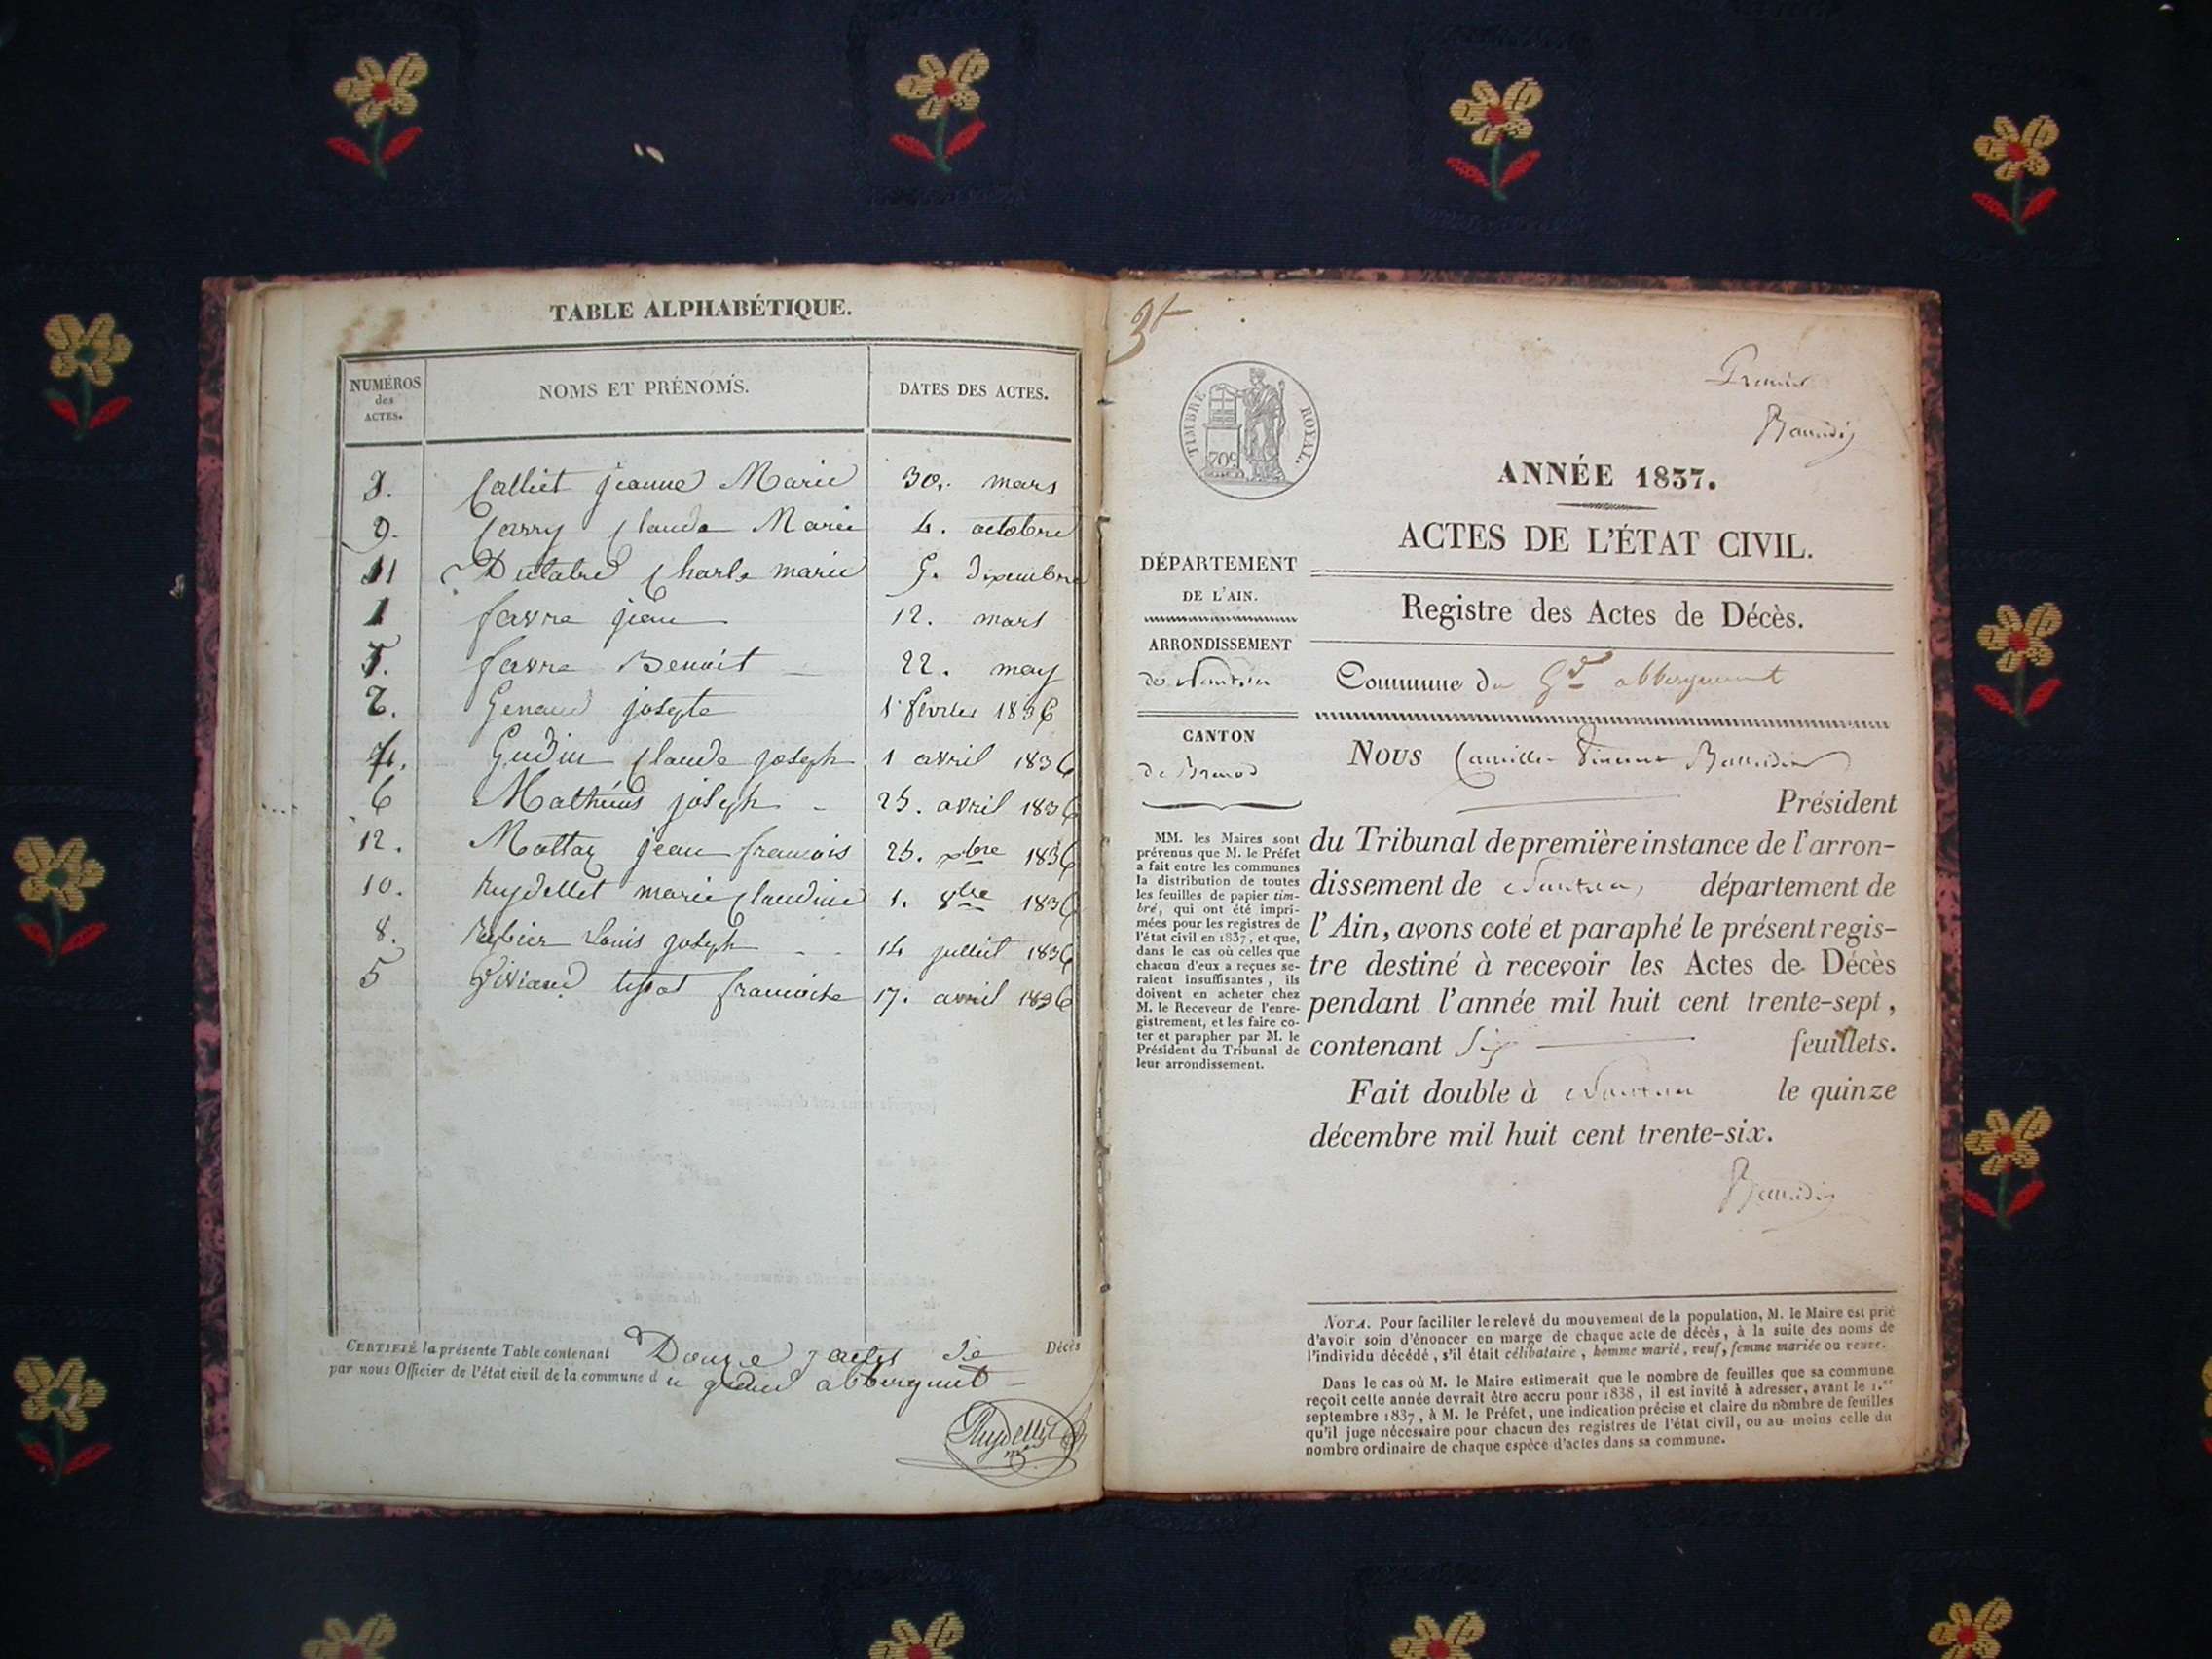 TABLE ALPHABÉTIQUE.
NUMÉROS des ACTES.
NOMS ET PRÉNOMS.
DATES DES ACTES.
3. Calliet jeanne Marie 30. mars
9. Carry Claude Marie 4. octobre
11 Charle marie
1 favre jean 12. mars
favre Benoit 22. may
2. Genaud josepte 1 février 1836
4. Gudin Claude joseph 1 avril 1836
6 joseph 25. avril 1836
12. jean francois 25. xbre 1836
10. Ruydellet marie Claudine 1. 8bre 1836
8. Louis joseph 14 juilliet 1836
5 francoise 17. avril 1836
CERTIFIÉ la présente Table contenant Douze actes de Décès
par nous Officier de l'état civil de la commune du grand abbergment
Ruydellet
TIMBRE ROYAL.
70c
Premier
Baudin
ANNÉE 1837.
ACTES DE L'ÉTAT CIVIL.
Registre des Actes de Décès.
Commune du Gd abbergement
DÉPARTEMENT
DE L'AIN.
ARRONDISSEMENT
de Nantua
CANTON
de Brenod
MM. les Maires sont
prévenus que M. le Préfet
a fait entre les communes
la distribution de toutes
les feuilles de papier tim-
bré, qui ont été impri-
mées pour les registres de
l'état civil en 1837, et que,
dans le cas où celles que
chacun d'eux a reçues se-
raient insuffisantes, ils
doivent en acheter chez
M. le Receveur de l'enre-
gistrement, et les faire co-
ter et parapher par M. le
Président du Tribunal de
leur arrondissement.
Nous Camille Vincent
Président
du Tribunal de première instance de l'arron-
dissement de Nantua, département de
l'Ain, avons coté et paraphé le présent regis-
tre destiné à recevoir les Actes de Décès
pendant l'année mil huit cent trente-sept,
contenant Six feuillets.
Fait double à Nantua le quinze
décembre mil huit cent trente-six.
NOTA. Pour faciliter le relevé du mouvement de la population, M. le Maire est prié
d'avoir soin d'énoncer en marge de chaque acte de décès, à la suite des noms de
l'individu décédé, s'il était célibataire, homme marié, veuf, femme mariée ou veuve.
Dans le cas où M. le Maire estimerait que le nombre de feuilles que sa commune
reçoit cette année devrait être accru pour 1838, il est invité à adresser, avant le 1.er
septembre 1837, à M. le Préfet, une indication précise et claire du nombre de feuilles
qu'il juge nécessaire pour chacun des registres de l'état civil, ou au moins celle du
nombre ordinaire de chaque espèce d'actes dans sa commune.